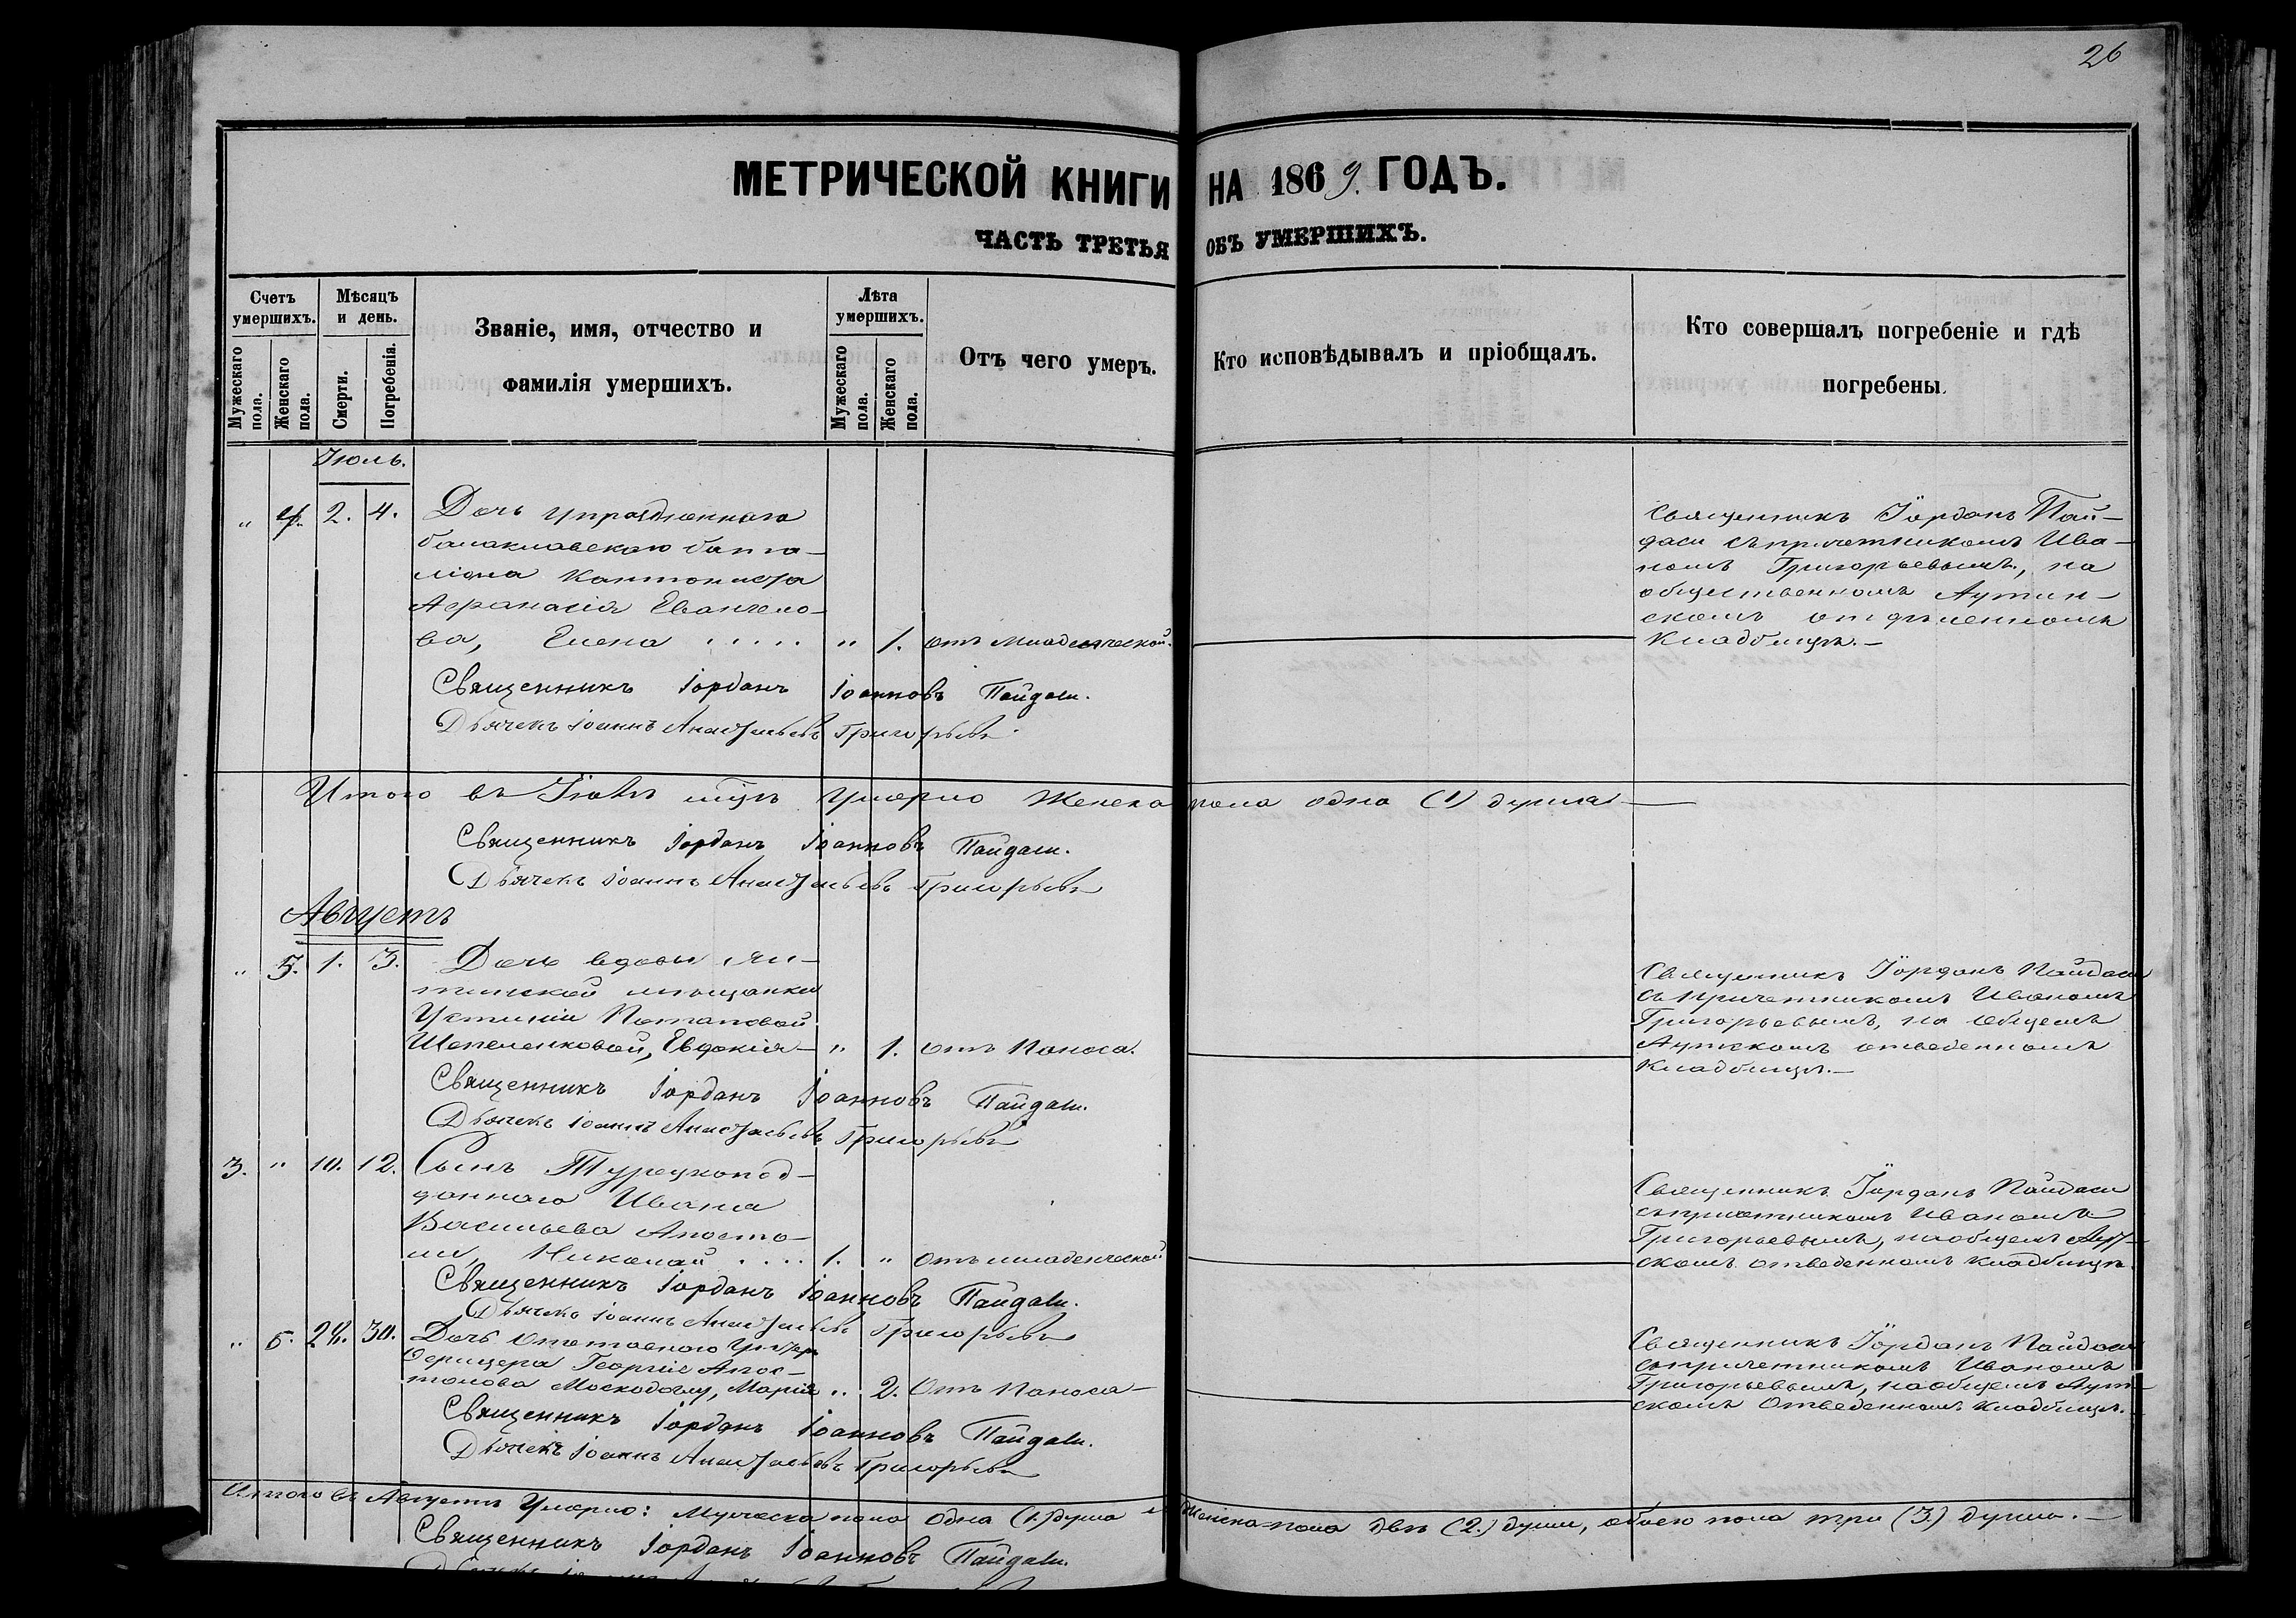 26
МЕТРИЧЕСКОЙ КНИГИ НА 1869. ГОДЪ.
ЧАСТЬ ТРЕТЬЯ ОБЪ УМЕРШИХЪ.
Счетъ умершихъ.
Мужескаго пола.
Женскаго пола.
Мѣсяцъ и день.
Смерти.
Погребенія.
Званіе, имя, отчество и
фамилія умершихъ.
Лѣта умершихъ.
Мужескаго пола.
Женскаго пола.
Отъ чего умеръ.
Кто исповѣдывалъ и пріобщалъ.
Кто совершалъ погребеніе и гдѣ
погребены.
Іюль.
„ 4. 2. 4. Дочь упраздненнаго
балаклавскаго бата-
ліона Кантониста
Афанасія Евангело-
ва, Елена . . . . . „ 1. отъ младенческой.
Священникъ Іорданъ Пай-
даси съ причетникомъ Ива-
номъ Григорьевымъ, на
общественномъ Аутин-
скомъ
кладбищѣ.—
Священникъ Іорданъ Іоанновъ Пайдаси.
Дьячекъ Іоаннъ Анастасьевъ Григорьевъ
Итого въ Іюлѣ м-цѣ Умерло Женска пола одна (1) душа
Священникъ Іорданъ Іоанновъ Пайдаси.
Дьячекъ Іоаннъ Анастасьевъ Григорьевъ
Августъ
„ 5. 1. 3. Дочь вдовы Ял-
тинской мѣщанки
Устиніи Потаповой
Шепеленковой, Евдокія— „ 1. отъ Поноса.
Священникъ Іорданъ Пайдаси
съ причетникомъ Иваномъ
Григорьевымъ, на общемъ
Аутскомъ отведенномъ
кладбищѣ.—
Священникъ Іорданъ Іоанновъ Пайдаси.
Дьячекъ Іоаннъ Анастасьевъ Григорьевъ
3. „ 10. 12. Сынъ Турецкопод-
даннаго Ивана
Васильева Апосто-
ли, Николай . . . . 1. „ Отъ младенческой
Священникъ Іорданъ Пайдаси
съ причетникомъ Иваномъ
Григорьевымъ, на общемъ Аут-
скомъ отведенномъ кладбищѣ.
Священникъ Іорданъ Іоанновъ Пайдаси.
Дьячекъ Іоаннъ Анастасьевъ Григорьевъ
„ 6. 28. 30. Дочь Отставного Унтеръ
Офицера Георгія Апос-
толова Москодоглу, Марія „ 2. Отъ Поноса—
Священникъ Іорданъ Пайдаси
съ причетникомъ Иваномъ
Григорьевымъ, на общемъ Аут-
скомъ Отведенномъ кладбищѣ.
Священникъ Іорданъ Іоанновъ Пайдаси.
Дьячекъ Іоаннъ Анастасьевъ Григорьевъ
Итого въ Августѣ Умерло: Мужеска пола Одна (1.) душа и Женска пола двѣ (2.) души, обоего пола три (3.) души.—
Священникъ Іорданъ Іоанновъ Пайдаси.